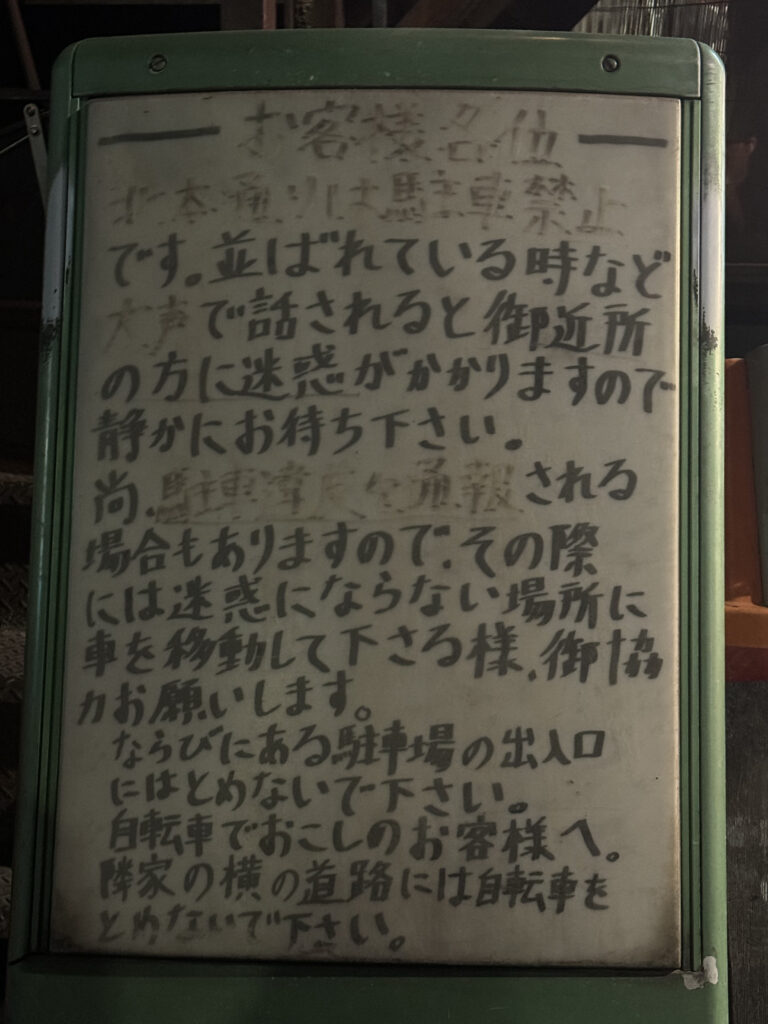 — お客様各位 —
北本通りは駐車禁止
です。並ばれている時など
大声で話されると御近所
の方に迷惑がかかりますので
静かにお待ち下さい。
尚、駐車違反で通報される
場合もありますので、その際
には迷惑にならない場所に
車を移動して下さる様、御協
力お願いします。
ならびにある駐車場の出入口
にはとめないで下さい。
自転車でおこしのお客様へ。
隣家の横の道路には自転車を
とめないで下さい。